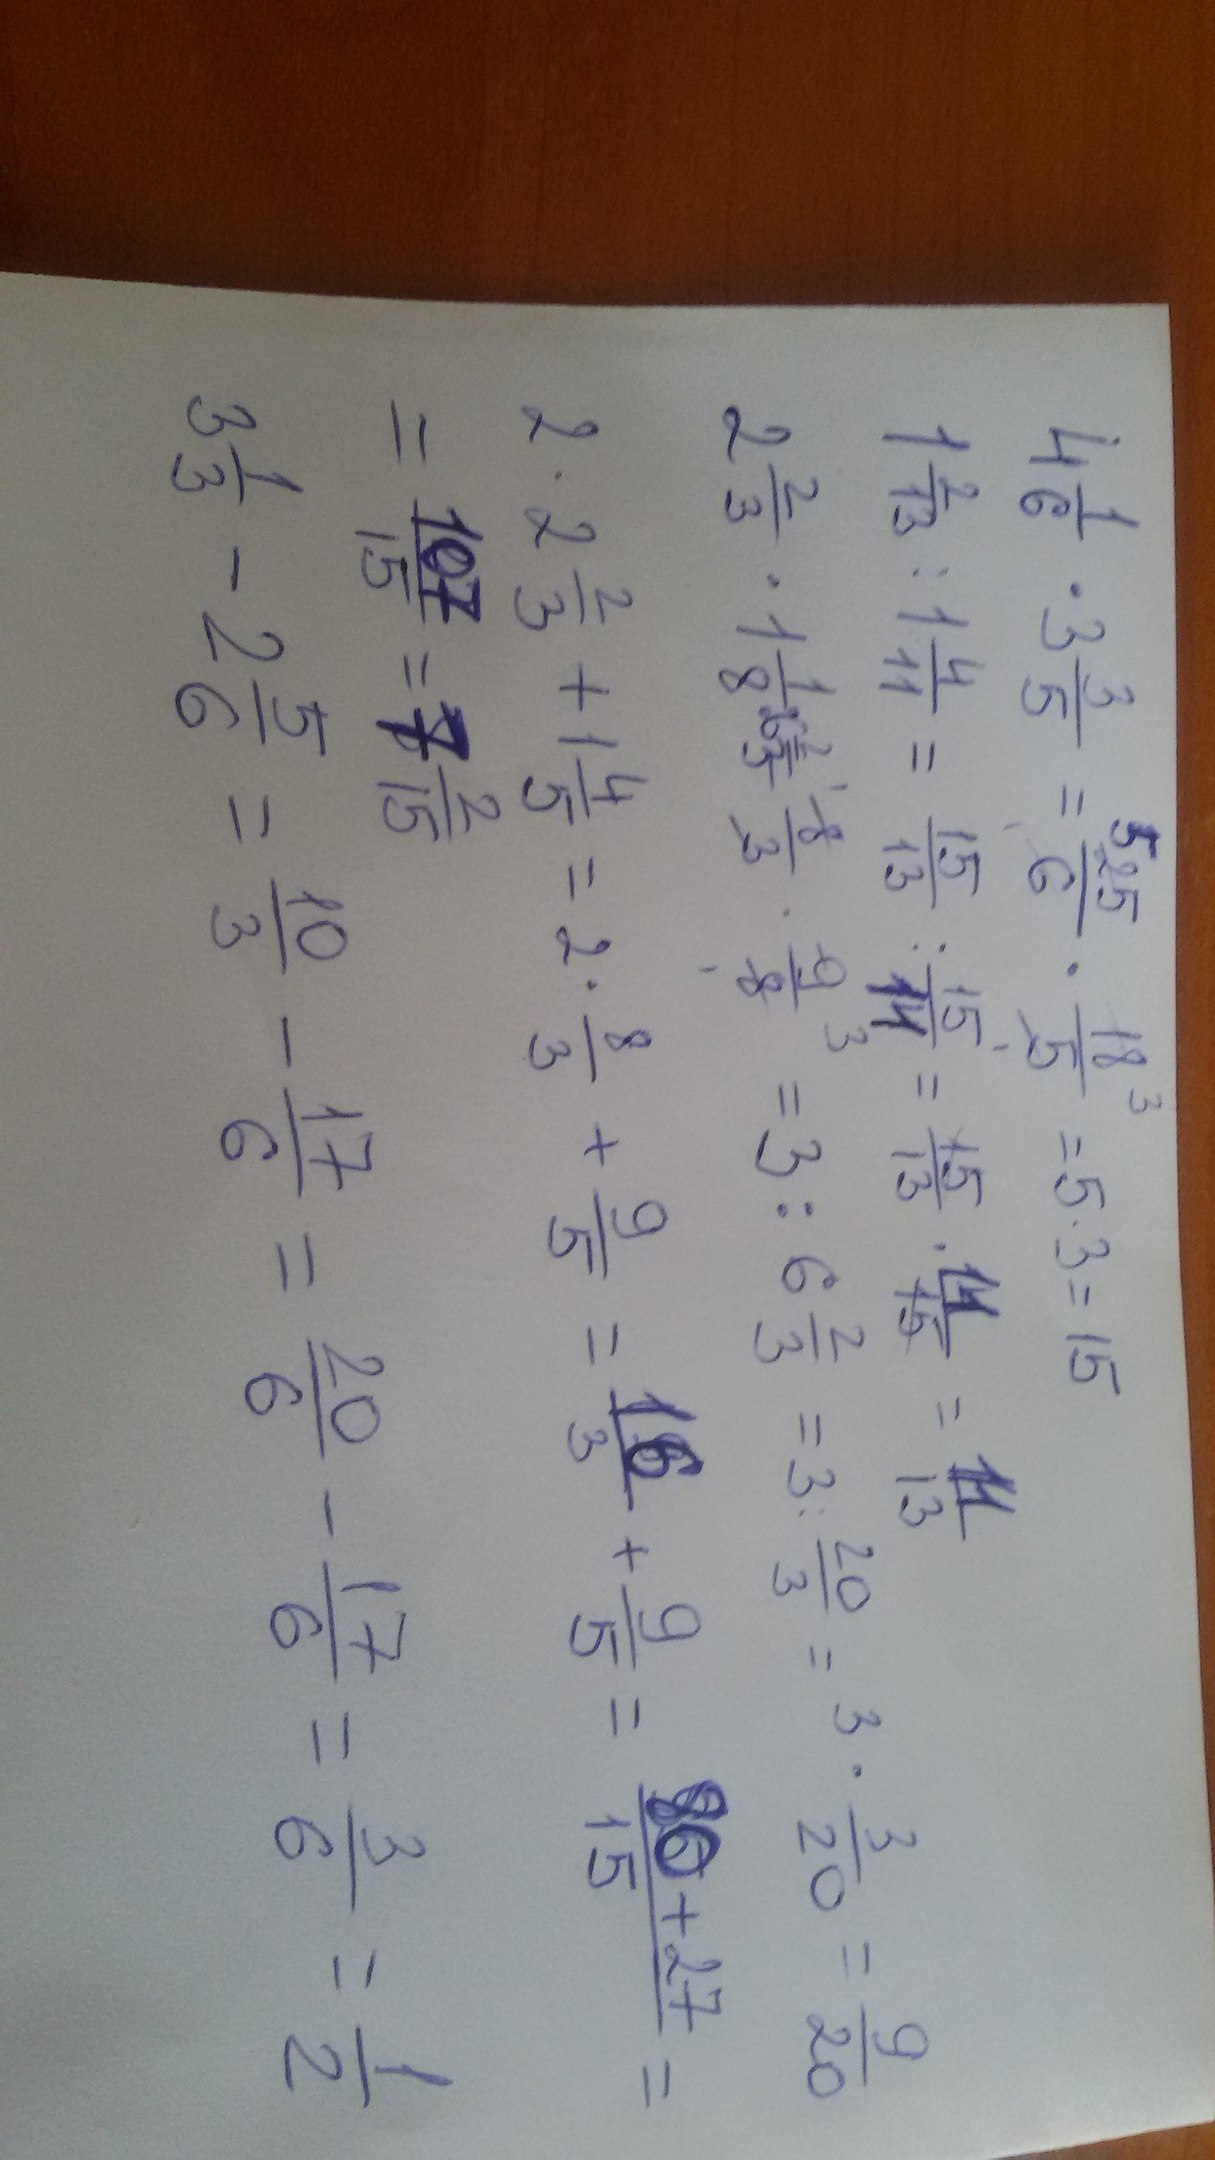 4 1/6 · 3 3/5 = 25/6 · 18/5 = 5·3 = 15
1 2/13 : 1 4/11 = 15/13 : 15/11 = 15/13 · 11/15 = 11/13
2 2/3 · 1 1/8 8/3 · 9/8 = 3 : 6 2/3 = 3 : 20/3 = 3 · 3/20 = 9/20
2 · 2 2/3 + 1 4/5 = 2 · 8/3 + 9/5 = 16/3 + 9/5 = 80+27/15 =
= 107/15 = 7 2/15
3 1/3 - 2 5/6 = 10/3 - 17/6 = 20/6 - 17/6 = 3/6 = 1/2